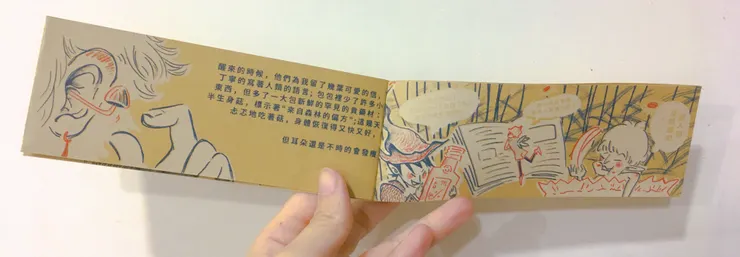 醒來的時候，他們為我留了幾葉可愛的信，
丁寧的寫著人類的語言；包包裡少了許多小
東西，但多了一大包新鮮的罕見的貴藥材：
半生身菇，標示著“來自森林的偏方”；這幾天
忐忑地吃著菇，身體恢復得又快又好，
但耳朵還是不時的會發癢